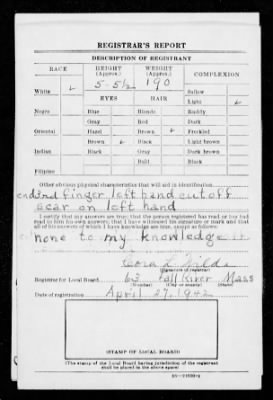 REGISTRAR'S REPORT
DESCRIPTION OF REGISTRANT
RACE HEIGHT (Approx.) WEIGHT (Approx.) COMPLEXION
5-5½ 190
White Sallow
EYES HAIR Light
Negro Blue Blonde Ruddy
Gray Red Dark
Oriental Hazel Brown Freckled
Brown Black Light brown
Indian Black Gray Dark brown
Bald Black
Filipino
Other obvious physical characteristics that will aid in identification
finger left hand cut off
scar on left hand
I certify that my answers are true; that the person registered has read or has had
read to him his own answers; that I have witnessed his signature or mark and that
all of his answers of which I have knowledge are true, except as follows:
none to my knowledge
Cora L.
(Signature of registrar)
Registrar for Local Board 63 Fall River Mass
(Number) (City or county) (State)
Date of registration April 27, 1942
STAMP OF LOCAL BOARD
(The stamp of the Local Board having jurisdiction of the registrant
shall be placed in the above space)